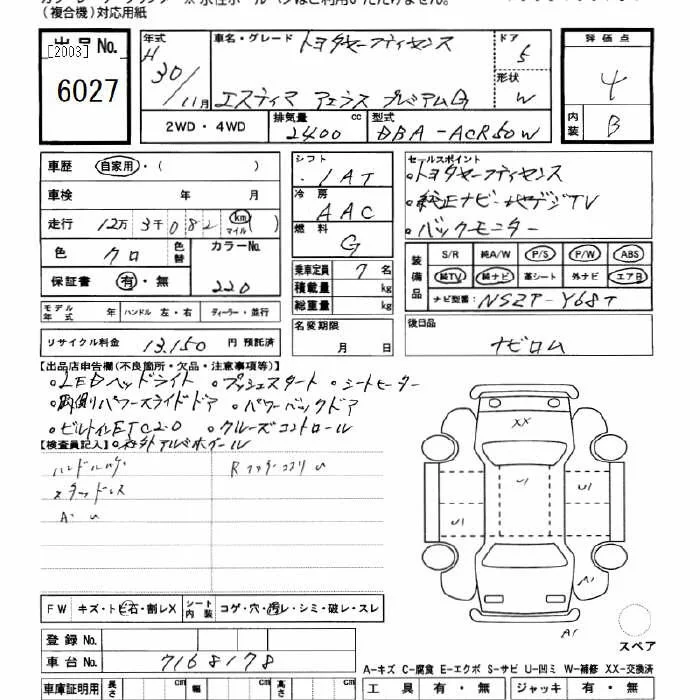 (複合機)対応用紙
出品No.
[2003]
6027
年式
H 30/11月
車名・グレード
トヨタセーフティセンス
エスティマ アエラス プレミアムG
ドア
5
形状
W
2WD・4WD
排気量
2400 cc
型式
DBA-ACR50W
評価点
4
内装
B
車歴 自家用・( )
車検 年 月
走行 12万 3千 0 8 2 km マイル ( )
色 クロ 色替 カラーNo.
220
保証書 有・無
モデル年式 年 ハンドル 左・右 ディーラー・並行
リサイクル料金 13,150 円 預託済
シフト
IAT
冷房
AAC
燃料
G
乗車定員 7 名
積載量 kg
総重量 kg
名変期限
月 日
セールスポイント
・トヨタセーフティセンス
・純正ナビ・地デジTV
・バックモニター
装備品
S/R 純A/W P/S P/W ABS
純TV 純ナビ 革シート 外ナビ エアB
ナビ型番: NSZT-Y68T
後日品
ナビロム
【出品店申告欄(不良箇所・欠品・注意事項等)】
・LEDヘッドライト ・プッシュスタート ・シートヒーター
・両側パワースライドドア ・パワーバックドア
・ビルトインETC2.0 ・クルーズコントロール
【検査員記入】 ・社外アルミホイール
A・U
XX
U1
U1
U1
A1
A1
FW キズ・トビ石・割レX シート内装 コゲ・穴・スレ・シミ・破レ・スレ
登録No.
車台No. 7168178
車庫証明用 長さ cm 幅 cm 高さ cm
スペア
A-キズ C-腐食 E-エクボ S-サビ U-凹ミ W-補修 XX-交換済
工具 有・無 ジャッキ 有・無